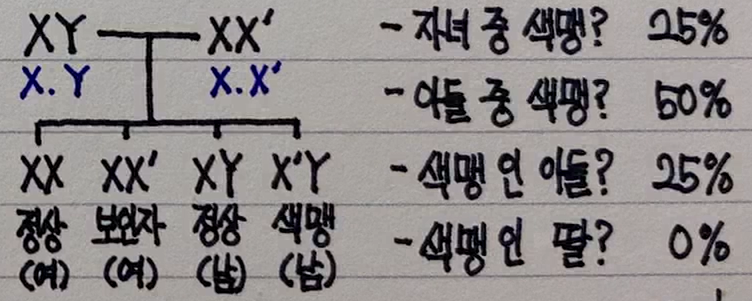 XY XX'
X.Y X.X'
XX XX' XY X'Y
정상 보인자 정상 색맹
(여) (여) (남) (남)
- 자녀 중 색맹? 25%
- 아들 중 색맹? 50%
- 색맹인 아들? 25%
- 색맹인 딸? 0%